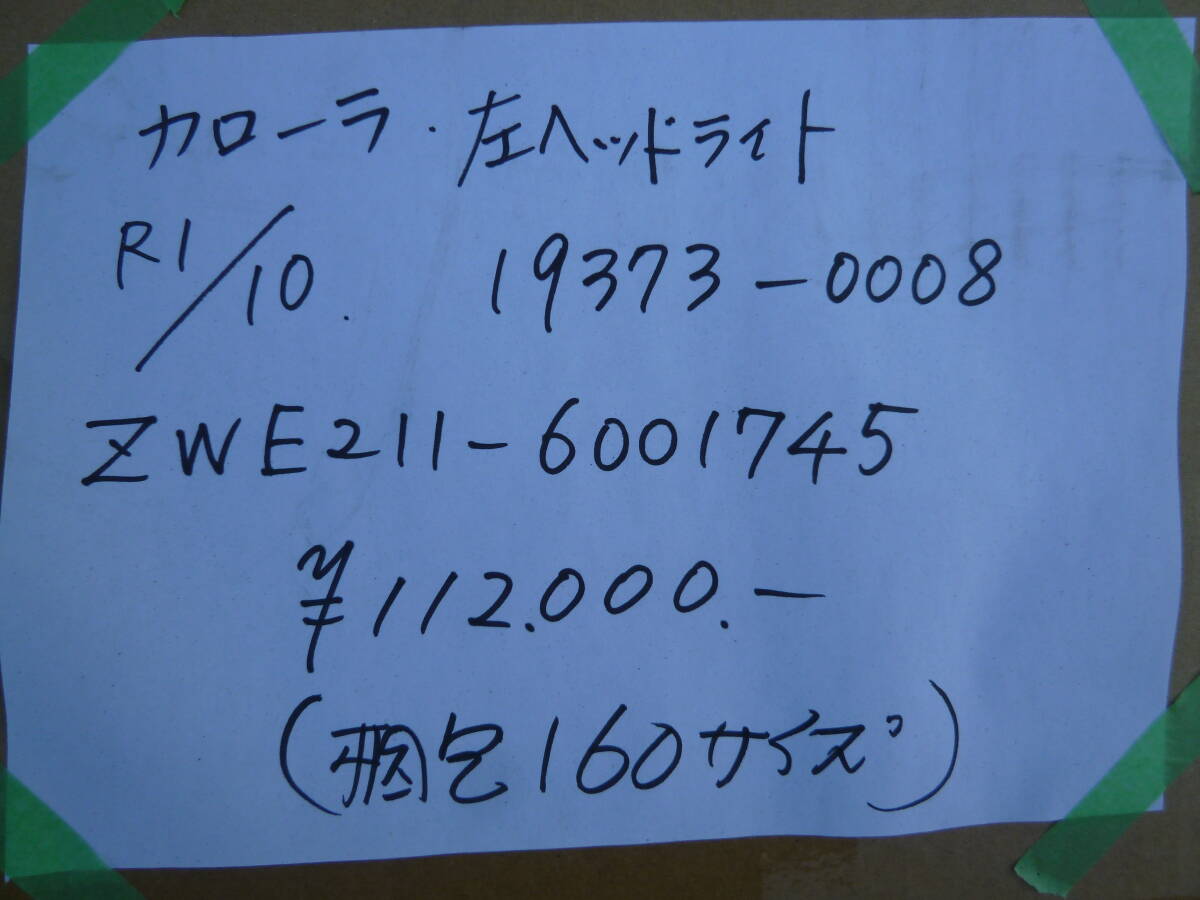 カローラ・左ヘッドライト
R1/10. 19373-0008
ZWE211-6001745
¥112.000.-
(梱包160サイズ)